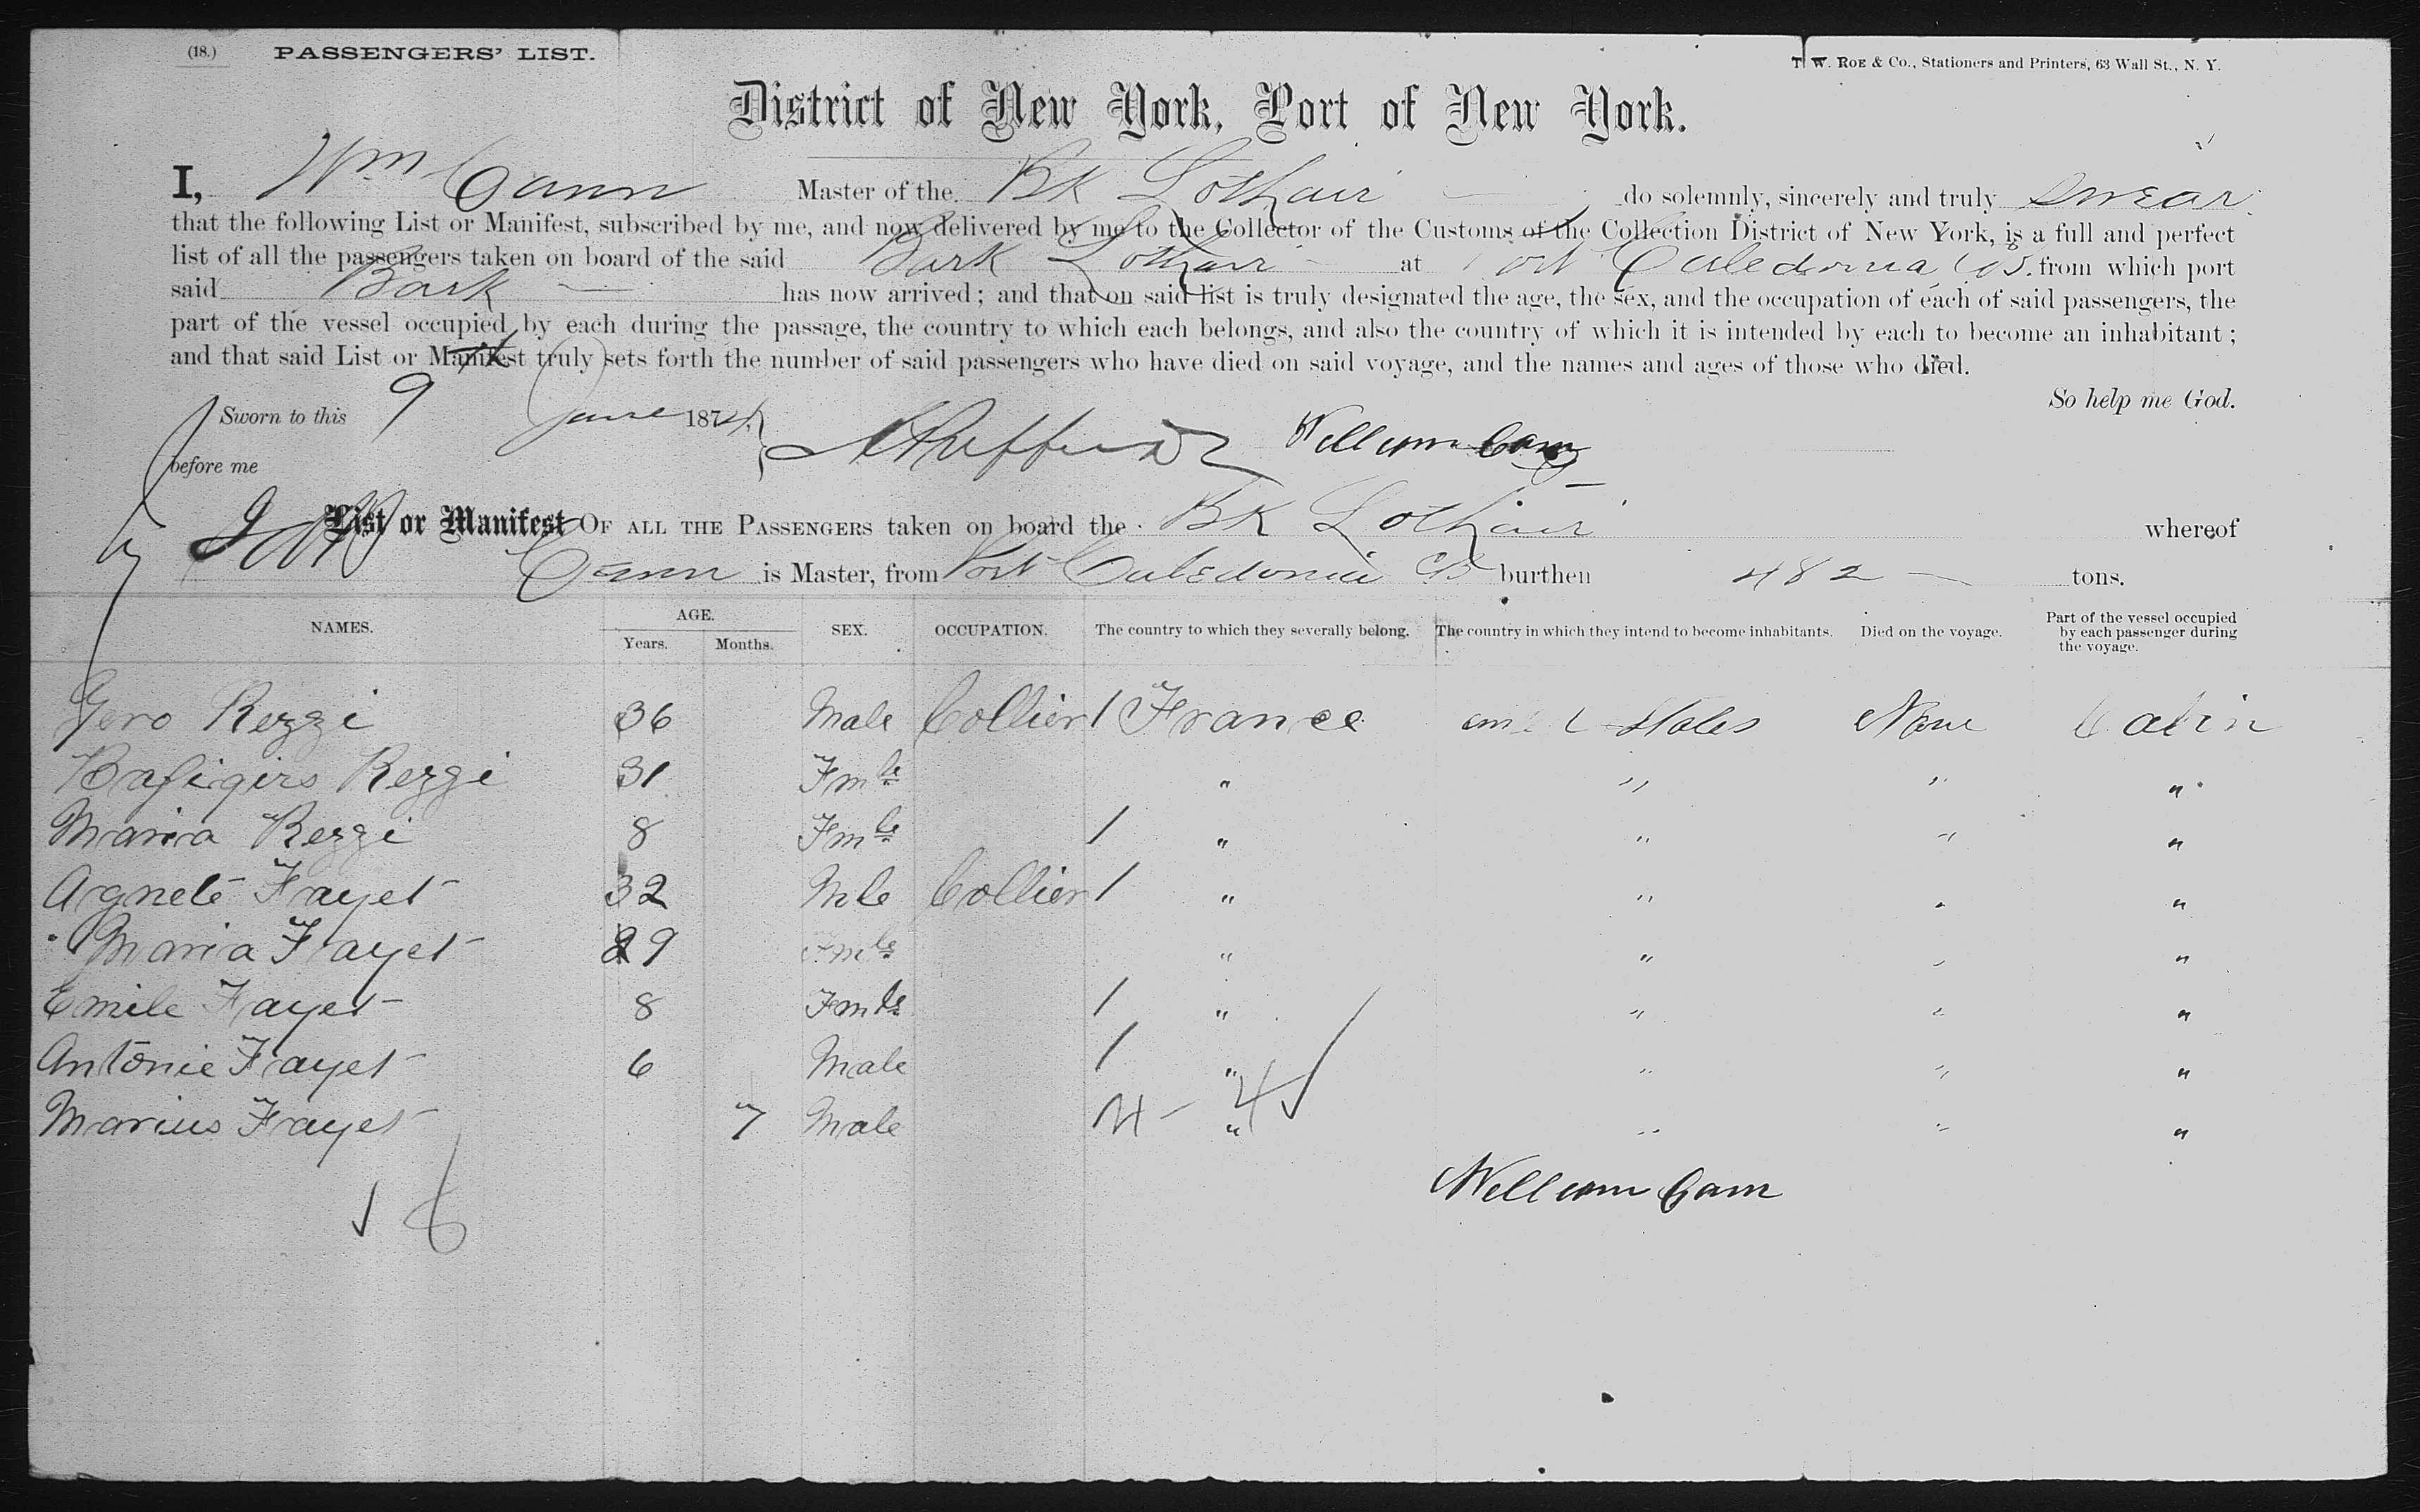 (18.) PASSENGERS' LIST.
T. W. ROE & CO., Stationers and Printers, 63 Wall St., N. Y.
District of New York, Port of New York.
I, Wm Cann Master of the Bk Lothair do solemnly, sincerely and truly swear
that the following List or Manifest, subscribed by me, and now delivered by me to the Collector of the Customs of the Collection District of New York, is a full and perfect
list of all the passengers taken on board of the said Bark Lothair at Port Caledonia CB. from which port
said Bark has now arrived; and that on said list is truly designated the age, the sex, and the occupation of each of said passengers, the
part of the vessel occupied by each during the passage, the country to which each belongs, and also the country of which it is intended by each to become an inhabitant;
and that said List or Manifest truly sets forth the number of said passengers who have died on said voyage, and the names and ages of those who died.
So help me God.
Sworn to this 9th June 1874
William Cann
before me
List or Manifest OF ALL THE PASSENGERS taken on board the Bk Lothair whereof
Cann is Master, from Port Caledonia CB burthen 482 tons.
NAMES. AGE. Years. Months. SEX. OCCUPATION. The country to which they severally belong. The country in which they intend to become inhabitants. Died on the voyage. Part of the vessel occupied by each passenger during the voyage.
Gero Rezzi 36 Male Collier 1 France States None Cabin
Rezzi 31 Fmle " " " "
Maria Rezzi 8 Fmle 1 " " " "
Agnete Frayet 32 Mle Collier 1 " " " "
Maria Frayet 29 Fmle " " " "
Emile Frayet 8 Fmle 1 " " " "
Antonie Frayet 6 Male 1 " " " "
Marius Frayet 7 Male 4 - 4 " " " "
William Cann
8